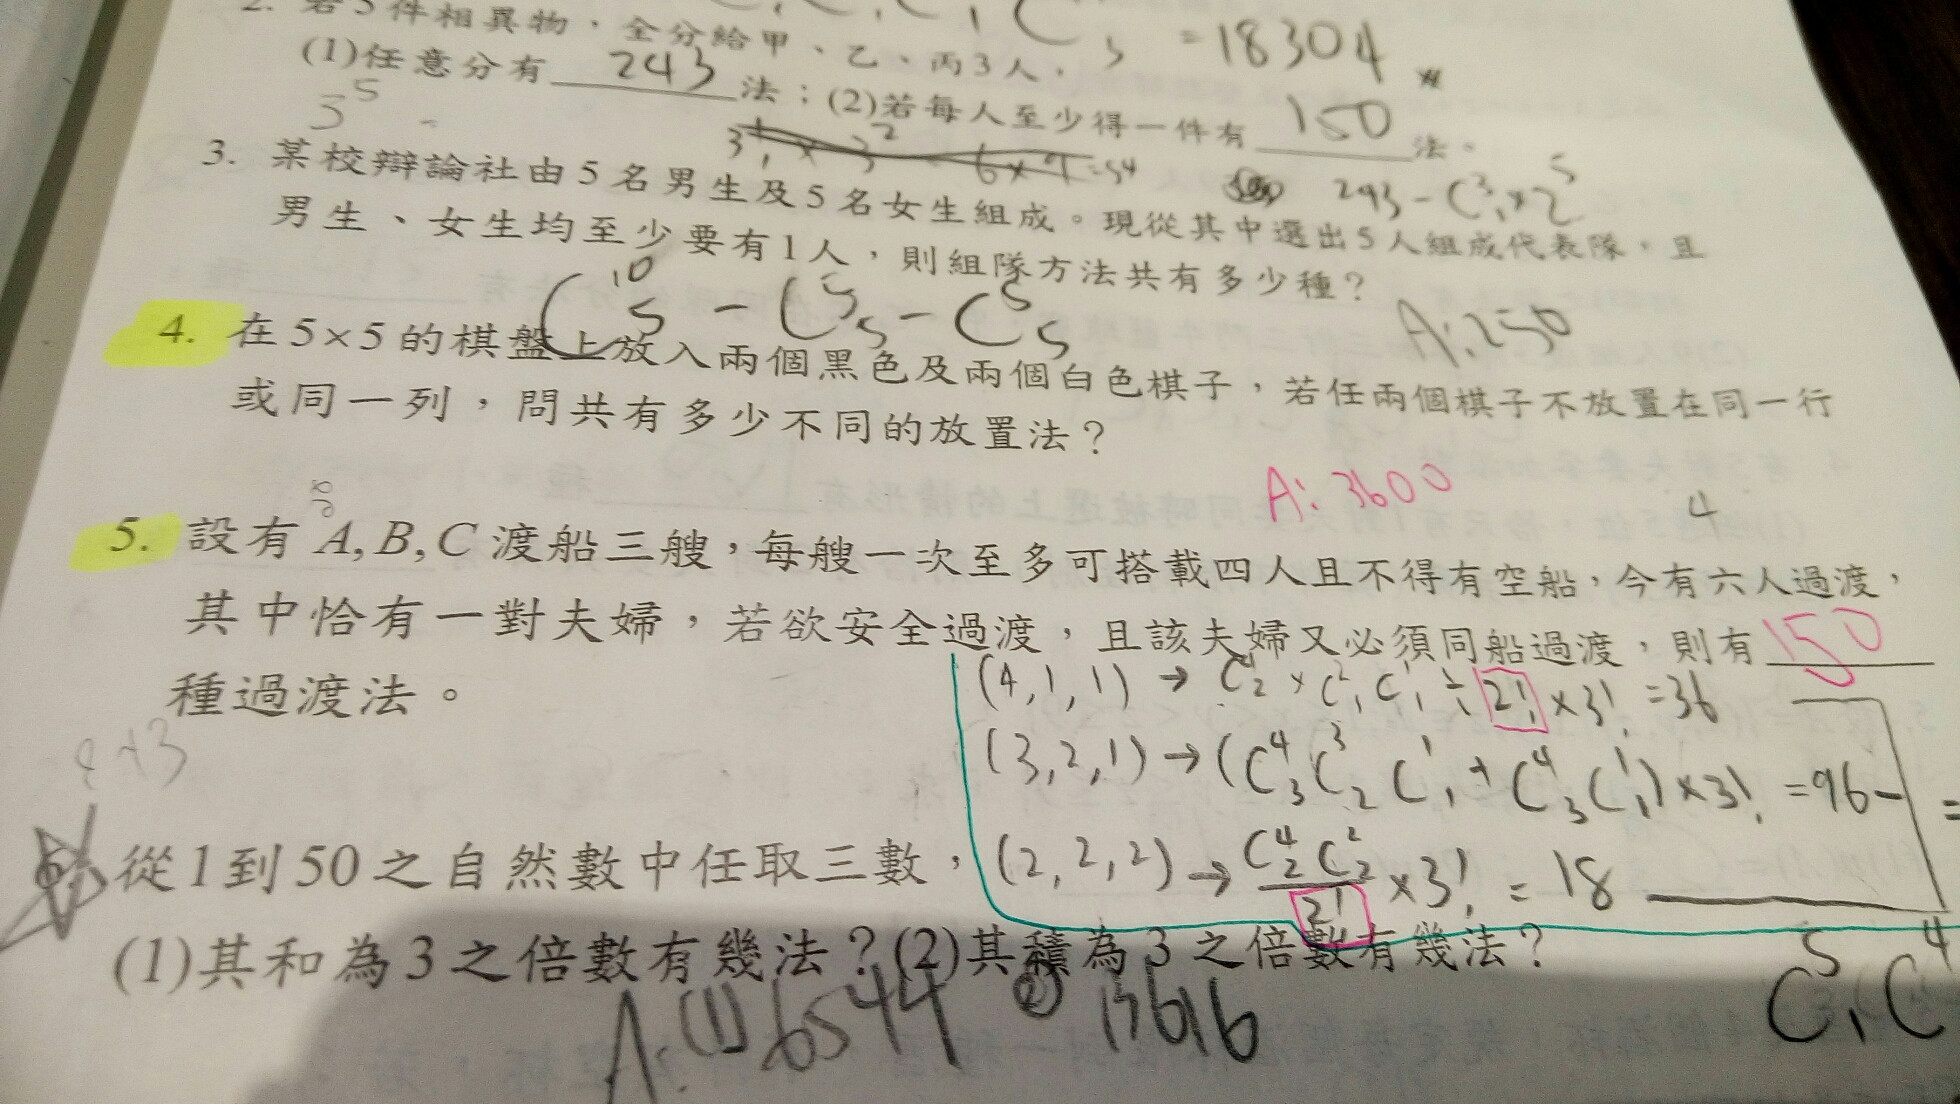 2. 若5件相異物，全分給甲、乙、丙3人，
= 18304
(1)任意分有 243 法；(2)若每人至少得一件有 150 法。
3⁵
243 - C³₁×2⁵
3. 某校辯論社由5名男生及5名女生組成。現從其中選出5人組成代表隊，且
男生、女生均至少要有1人，則組隊方法共有多少種？
C¹⁰₅ - C⁵₅ - C⁵₅
A:250
4. 在5×5的棋盤上放入兩個黑色及兩個白色棋子，若任兩個棋子不放置在同一行
或同一列，問共有多少不同的放置法？
A: 3600
4
5. 設有A, B, C渡船三艘，每艘一次至多可搭載四人且不得有空船，今有六人過渡，
其中恰有一對夫婦，若欲安全過渡，且該夫婦又必須同船過渡，則有 150
種過渡法。
(4,1,1) → C⁴₂ × C²₁ C¹₁ ÷ 2! × 3! = 36
(3,2,1) → (C⁴₃ C³₂ C¹₁ + C⁴₃ C¹₁) × 3! = 96
(2,2,2) → C⁴₂ C²₂ / 2! × 3! = 18
從1到50之自然數中任取三數，
(1)其和為3之倍數有幾法？(2)其積為3之倍數有幾法？
A:(1) 6544 (2) 13616
C⁵₁ C⁴